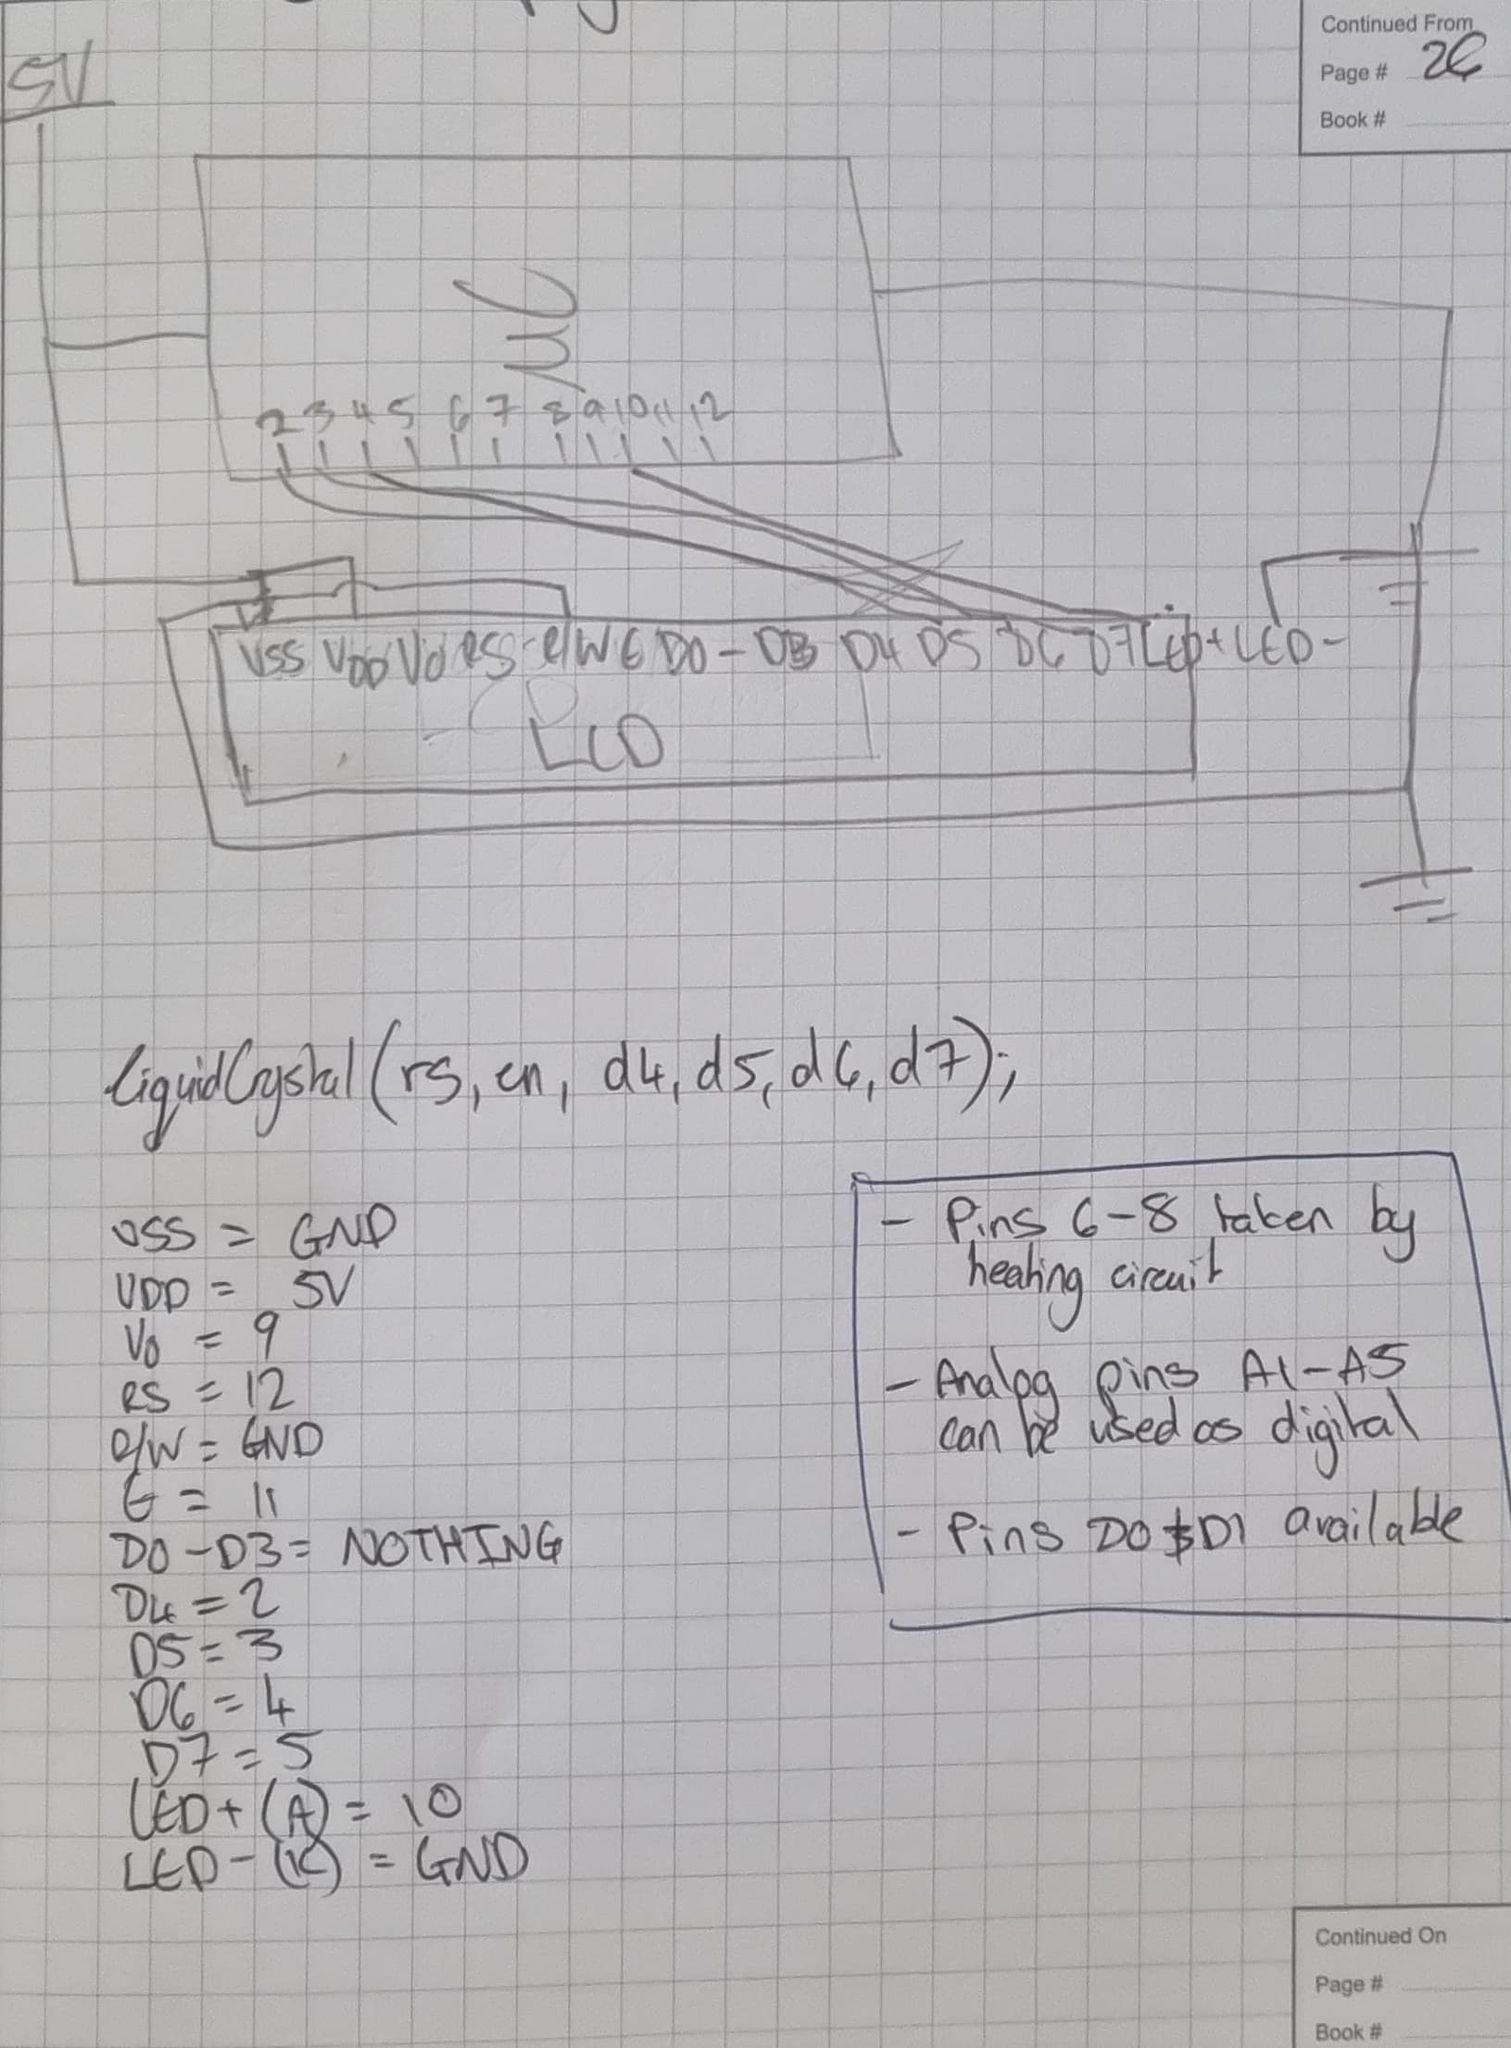 Continued From
Page # 26
Book #
5V
µC
2 3 4 5 6 7 8 9 10 11 12
VSS VDD VO RS R/W E D0 - D3 D4 D5 D6 D7 LED+ LED-
LCD
LiquidCrystal (rs, en, d4, d5, d6, d7);
VSS = GND
VDD = 5V
V0 = 9
RS = 12
R/W = GND
E = 11
D0 - D3 = NOTHING
D4 = 2
D5 = 3
D6 = 4
D7 = 5
LED+ (A) = 10
LED- (K) = GND
- Pins 6-8 taken by
heating circuit
- Analog pins A1-A5
can be used as digital
- Pins D0 & D1 available
Continued On
Page #
Book #